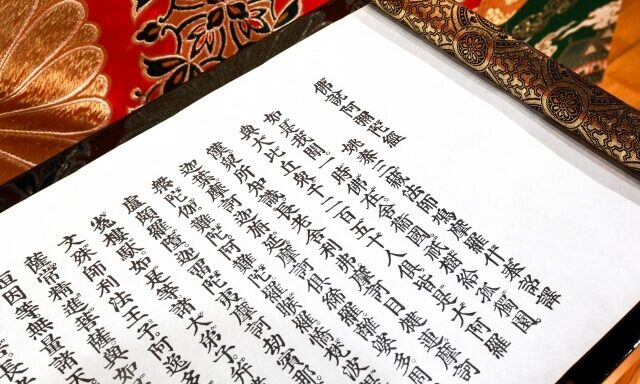 佛說阿彌陀經
姚秦三藏法師鳩摩羅什奉詔譯
如是我聞一時佛在舍衛國祇樹給孤獨園
與大比丘衆千二百五十人俱皆是大阿羅
漢衆所知識長老舍利弗摩訶目犍連摩訶
迦葉摩訶迦旃延摩訶俱絺羅離婆多周
槃陀伽難陀阿難陀羅睺羅憍梵波
盧頗羅墮迦留陀夷摩訶劫賓那
㝹樓駄如是等諸大弟子
文殊師利法王子阿逸多
薩常精進菩薩與如
桓因等無量諸天
長老